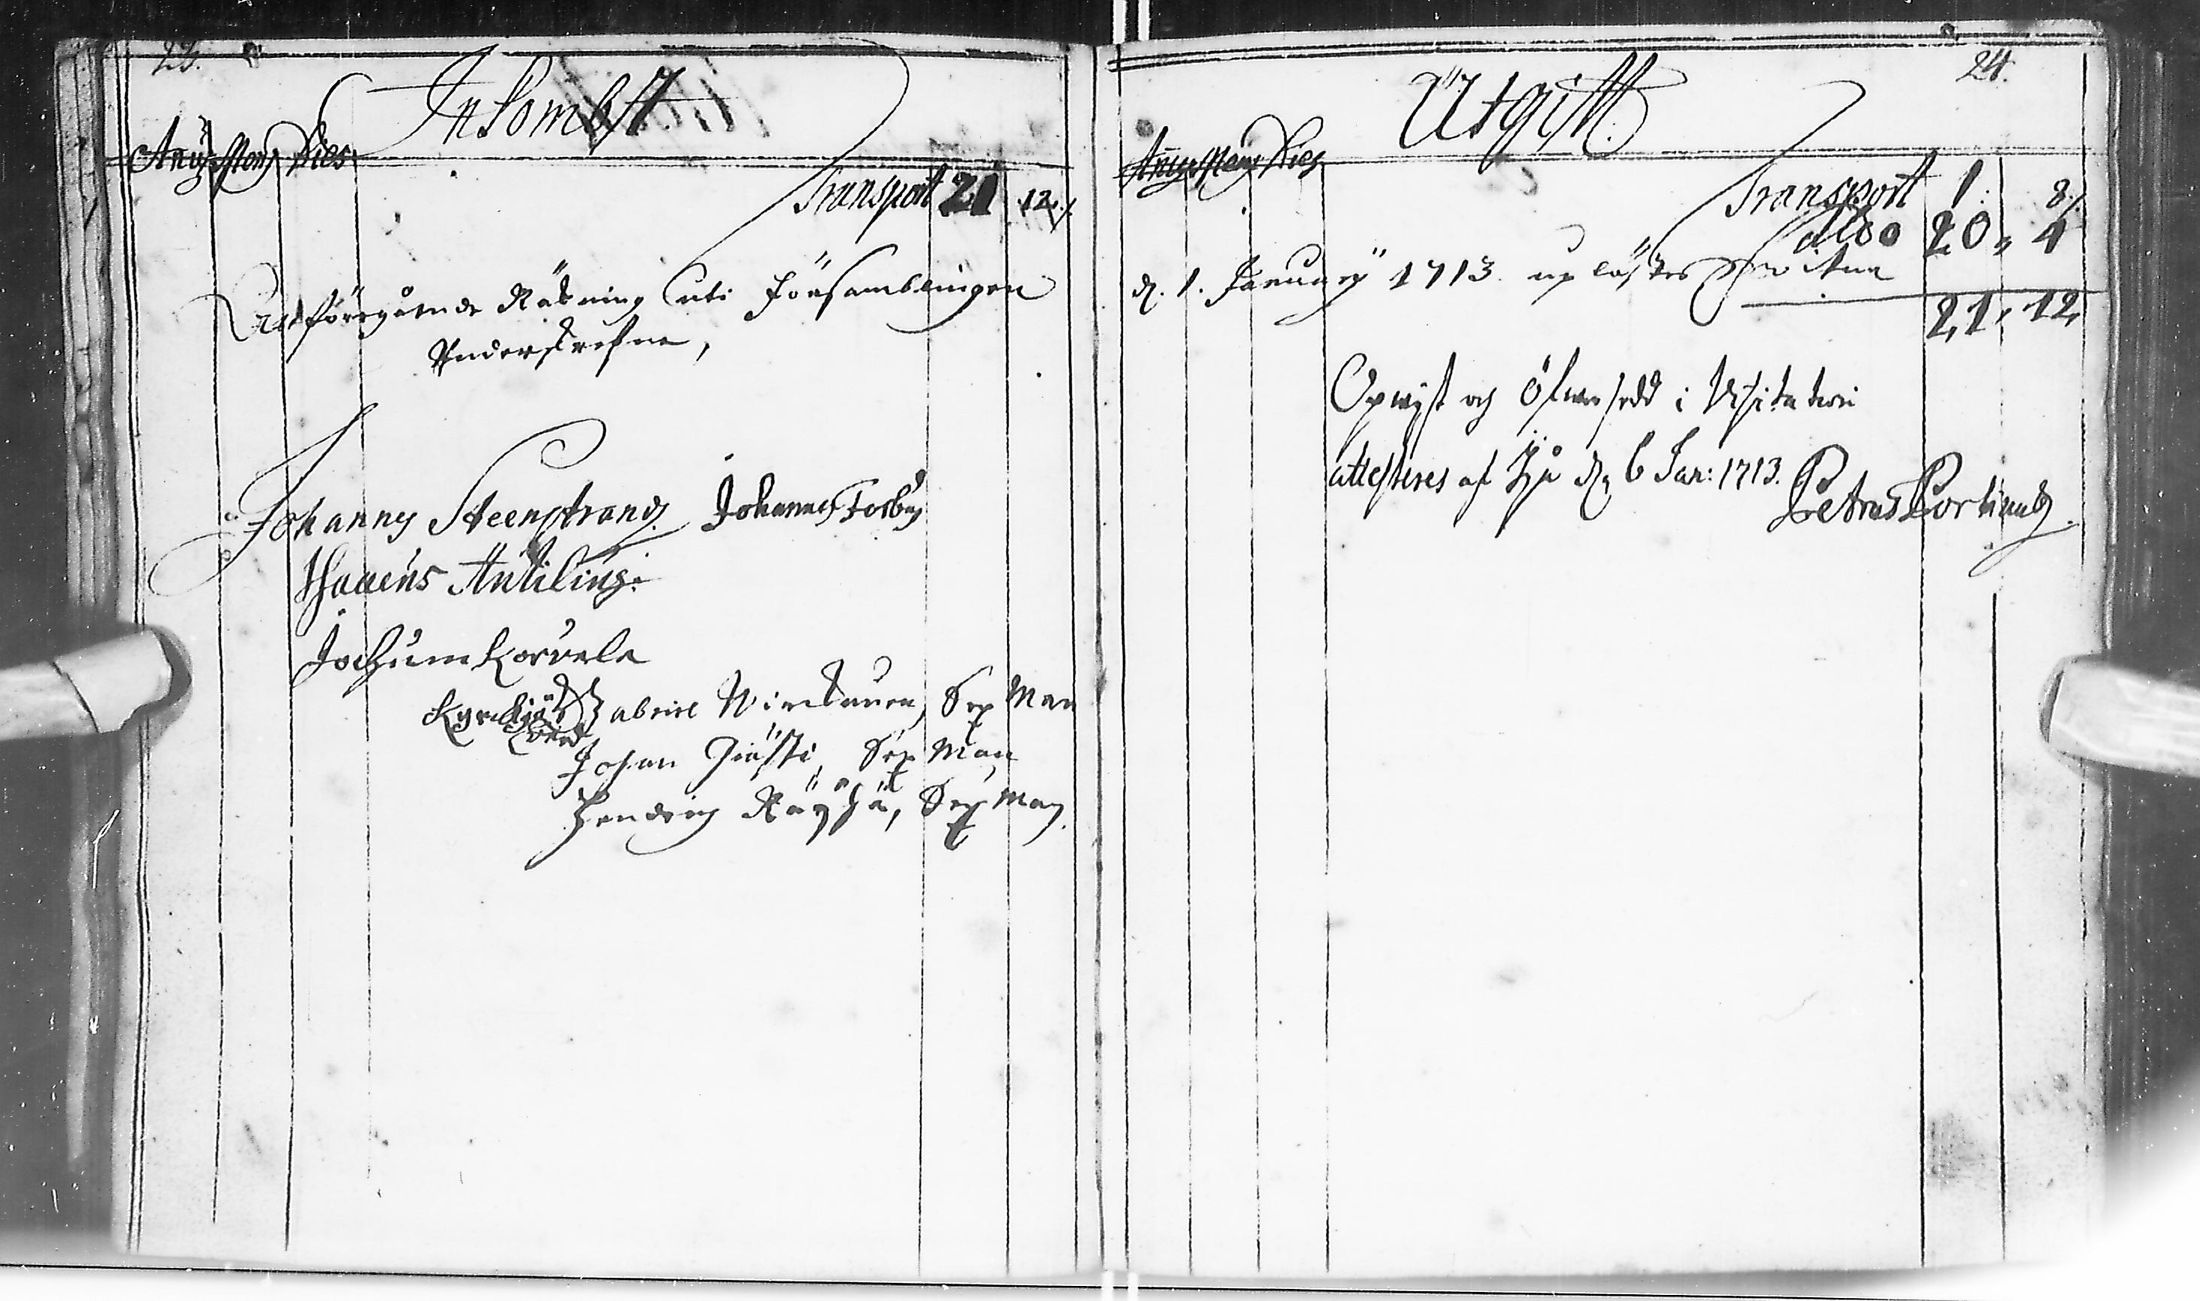 23.
Inkombst
Anūs Mens Dies
Transport 21 12./.
föregående Räkning uti Församblingen
Underskrefne,
Johannes Steenstrand Johannes Forbus
Isaacus Antilius.
Jochum Korvela
Kyrckiovärd Gabriel Wirckunen, Sex Man
Johan Hiusti, Sex Man
Hendrich Räyhä, Sex Man.
24.
Utgifft.
Annus Mens Dies
Transport 1. 8./.
Saldo 20, 4
d. 1. January 1713 uplästes
21, 12,
Opwijst och öfwersedd i Visitation
attesteres af Ijo d. 6 Jan: 1713. Petrus